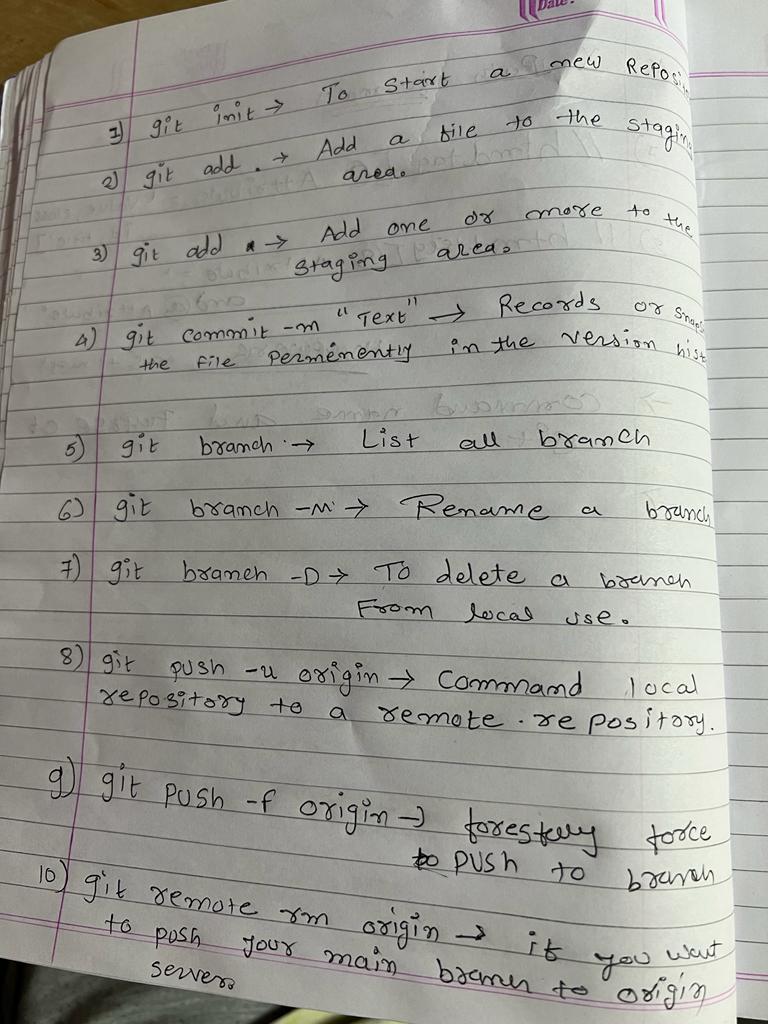 Date:
1) git init → To start a new Reposi
2) git add . → Add a file to the staging
area.
3) git add * → Add one or more to the
staging area.
4) git commit -m "Text" → Records or snaps
the file permenently in the version hist
5) git branch → List all branch
6) git branch -M → Rename a branch
7) git branch -D → To delete a branch
From local use.
8) git push -u origin → Command local
repository to a remote repository.
9) git push -f origin → force
to push to branch
10) git remote rm origin → if you want
to push your main branch to origin
server.